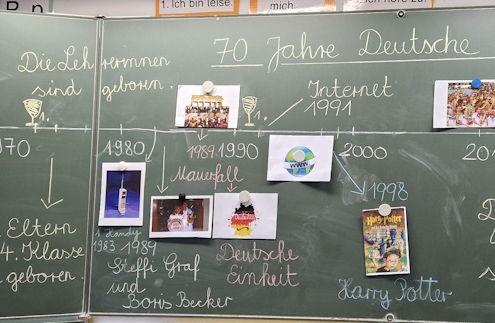 1. Ich bin leise.
mich.
70 Jahre Deutsche
Die Lehrerinnen
sind geboren.
1.
1.
Internet
1991
1980
1989 1990
2000
Mauerfall
WWW
1998
1 Handy
1983
1989
Steffi Graf
und
Boris Becker
Deutsche
Einheit
Harry Potter
Harry Potter
Eltern
4. Klasse
geboren.